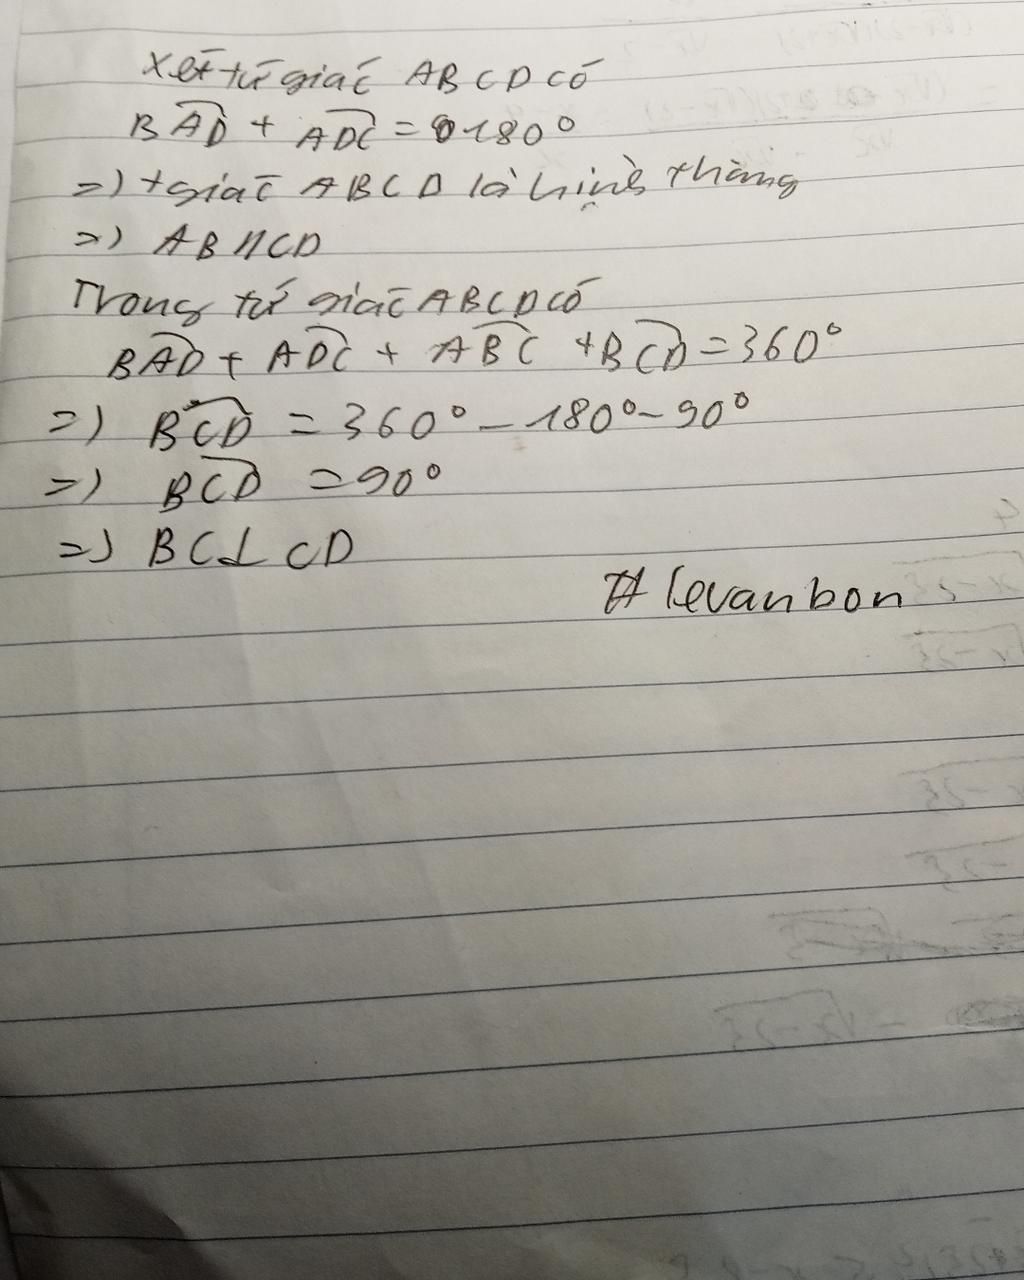 Xét tứ giác ABCD có
BAD + ADC = 180°
=) tgiác ABCD là hình thang
=) AB // CD
Trong tứ giác ABCD có
BAD + ADC + ABC + BCD = 360°
=) BCD = 360° - 180° - 90°
=) BCD = 90°
=) BC ⊥ CD
# levanbon